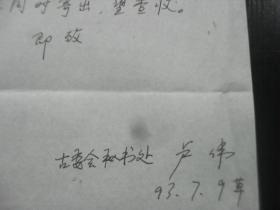 同时寄出，望查收。
即致
古委会秘书处 卢伟
93.7.9草